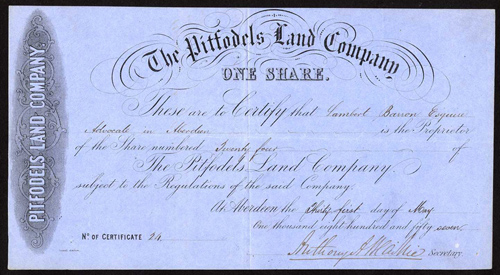 PITFODELS LAND COMPANY.
The Pitfodels Land Company.
ONE SHARE.
These are to Certify that Lambert Barron Esquire
Advocate in Aberdeen is the Proprietor
of the Share numbered Twenty four of
The Pitfodels Land Company.
subject to the Regulations of the said Company.
At Aberdeen the Thirty first day of May
One thousand eight hundred and fifty seven
No OF CERTIFICATE 24
Anthony Secretary